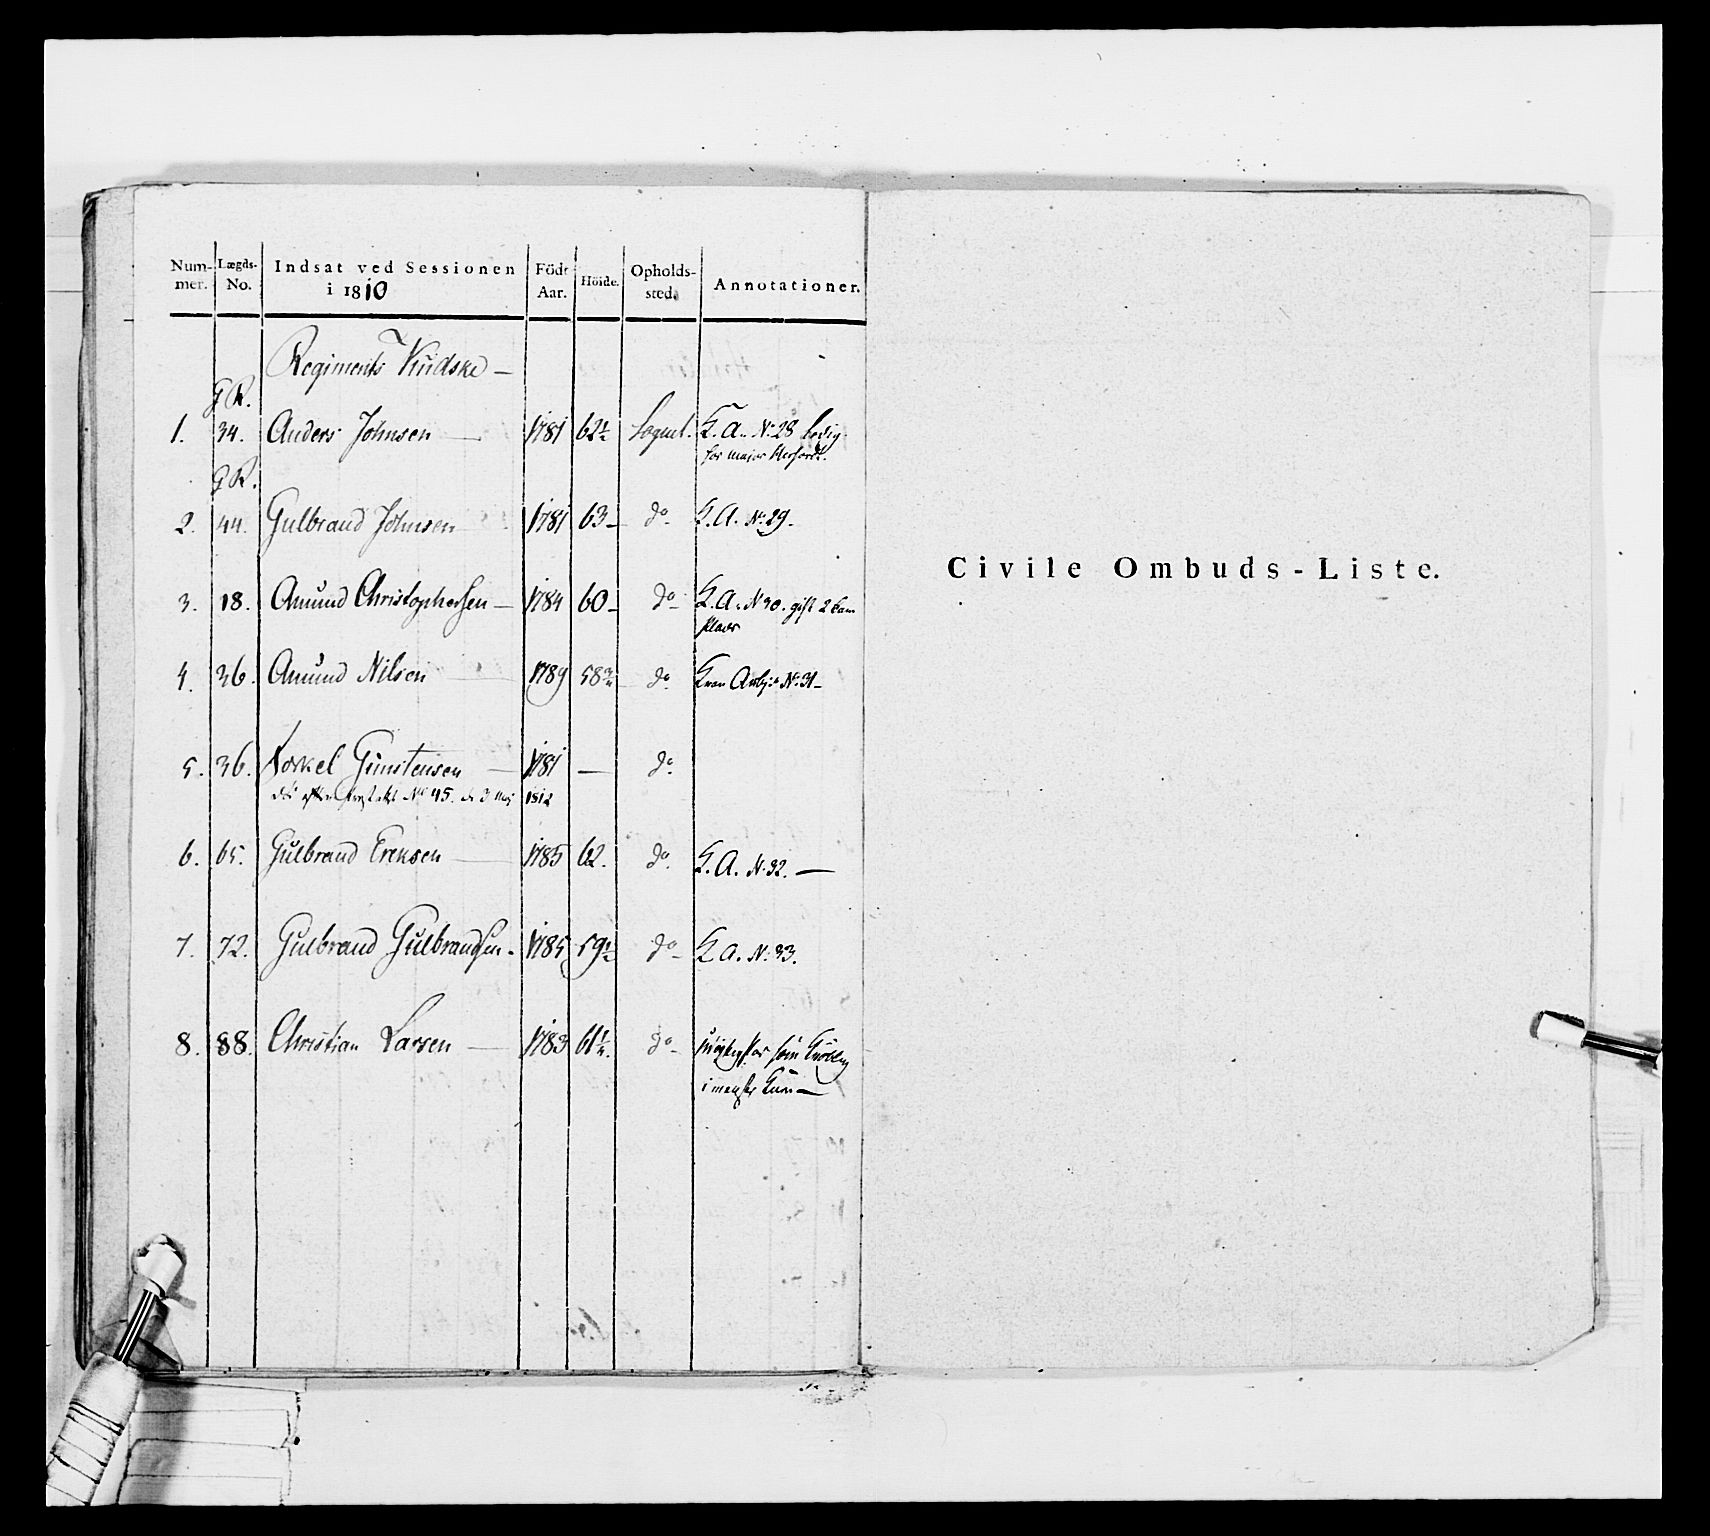 Num- Lægds- Indsat ved Sessionen Födt Höide. Opholds- Annotationer.
mer. No. i 1810 Aar. sted.
Regiments Kudske —
G R.
1. 34. Anders Johnsen — 1781 62½ Sognet. K. A. N: 28 ledig
for major
G R.
2. 44. Gulbrand Johnsen 1781 63 — do. K. A. N: 29.
3. 18. Amund Christophersen — 1784 60 — do K. A. N 30. gift 2 barn
4. 36. Amund Nilsen — 1789 58¾ do. N: 31 —
5. 36. Torkel Gunstensen — 1781 — do.
død efter attest No 45. de 3 May 1812
6. 65. Gulbrand Ereksen — 1785 62. do. K. A. N: 32. —
7. 72. Gulbrand Gulbrandsen. 1785 59½ do K A. N: 33.
8. 88. Christian Larsen — 1783 61½. do
Civile Ombuds-Liste.